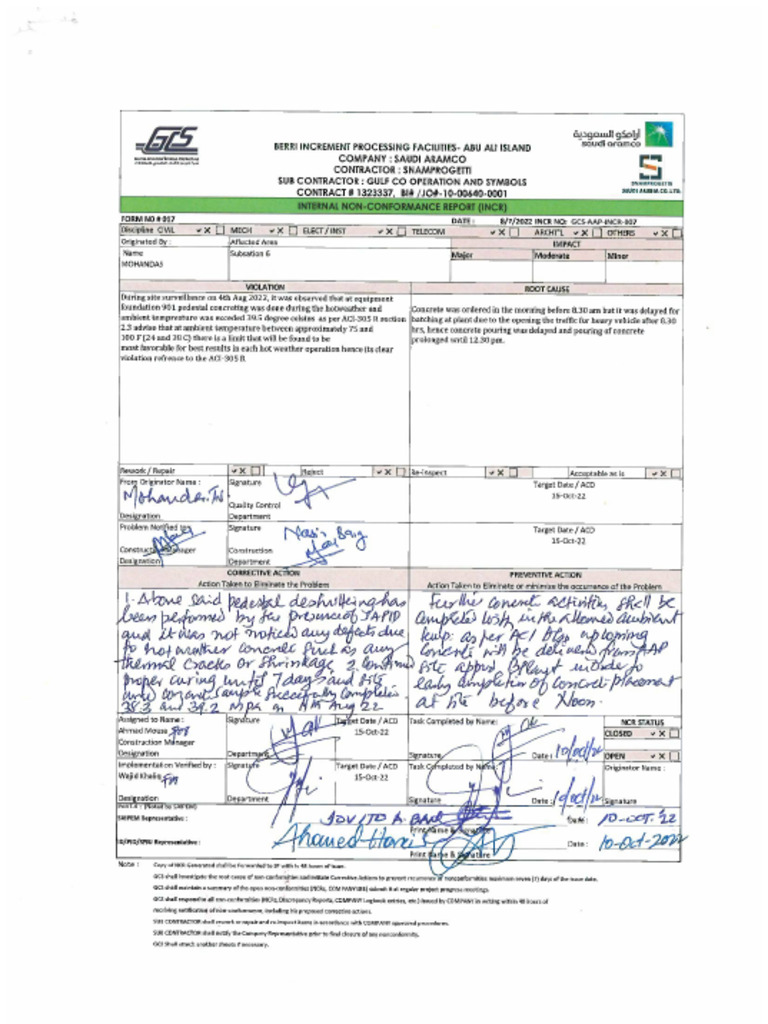 GCS
أرامكو السعودية
saudi aramco
BERRI INCREMENT PROCESSING FACILITIES- ABU ALI ISLAND
COMPANY : SAUDI ARAMCO
CONTRACTOR : SNAMPROGETTI
SUB CONTRACTOR : GULF CO OPERATION AND SYMBOLS
CONTRACT # 1323337, BI# /JO#-10-00640-0001
SNAMPROGETTI
SAUDI ARABIA CO. LTD.
INTERNAL NON-CONFORMANCE REPORT (INCR)
FORM NO # 017 DATE : 8/7/2022 INCR NO: GCS-AAP-INCR-007
Discipline CIVIL MECH ELECT / INST TELECOM ARCHT'L OTHERS
Originated By : Affected Area IMPACT
Name Subsation 6 Major Moderate Minor
MOHANDAS
VIOLATION ROOT CAUSE
During site surveillance on 4th Aug 2022, it was observed that at equipment
foundation 901 pedestal concreting was done during the hotweather and
ambient temperature was exceeded 39.5 degree celsius as per ACI-305 R section
2.3 advise that at ambient temperature between approximately 75 and
100 F (24 and 38 C) there is a limit that will be found to be
most favorable for best results in each hot weather operation hence its clear
violation refrence to the ACI-305 R
Concrete was ordered in the morning before 8.30 am but it was delayed for
batching at plant due to the opening the traffic for heavy vehicle after 8.30
hrs, hence concrete pouring was delayed and pouring of concrete
prolonged until 12.30 pm.
Rework / Repair Reject Re-inspect Acceptable as is
From Originator Name : Signature Target Date / ACD
Mohandas 15-Oct-22
Quality Control
Designation Department
Problem Notified to: Signature Nasir Baig Target Date / ACD
15-Oct-22
Construction Manager Construction
Designation Department
CORRECTIVE ACTION PREVENTIVE ACTION
Action Taken to Eliminate the Problem Action Taken to Eliminate or minimise the occurrence of the Problem
1. Above said pedestal deshuttering has
been performed by the presence of SAPID
and it was not noticed any defects due
to hot weather concrete such as any
thermal cracks or shrinkage 2. Continued
proper curing until 7 days and site
cured concrete sample successfully completed
38.3 and 39.2 MPa on Aug 22
Further concrete activities shall be
completed with in the allowed ambient
temp: as per ACI Also upcoming
concrete will be delivered from AAP
site approved Bplant inside to
early completion of concrete placement
at site before Noon.
Assigned to Name : Signature Target Date / ACD Task Completed by Name: NCR STATUS
Ahmed Mousa 15-Oct-22 CLOSED
Construction Manager
Designation Department Signature Date : 10/oct/22 OPEN
Implementation Verified by : Signature Target Date / ACD Task Completed by Name: Originator Name :
Wajid Khalid 15-Oct-22
Designation Department Signature Date : 10/oct/22 Signature
SAIPEM Representative : Date : 10-OCT.'22
Print Name & Signature
Representative : Ahamed Date : 10-Oct-2022
Print Name & Signature
Note : Copy of NCR Generated shall be forwarded to SP within 48 hours of issue.
GCS shall investigate the root cause of non-conformities and initiate Corrective Actions to prevent recurrence of nonconformities maximum seven (7) days of the issue date.
GCS shall maintain a summary of the open non-conformities (NCRs, COMPANY LBE) submit that regular project progress meetings.
GCS shall respond to all non-conformities (NCRs, Discrepancy Reports, COMPANY Logbook entries, etc.) issued by COMPANY in writing within 48 hours of
receiving notification of non-conformance, including his proposed corrective actions.
SUB CONTRACTOR shall rework or repair and re-inspect items in accordance with COMPANY approved procedures.
SUB CONTRACTOR shall notify the Company Representative prior to final closure of any nonconformity.
GCS Shall attach another sheets if necessary.